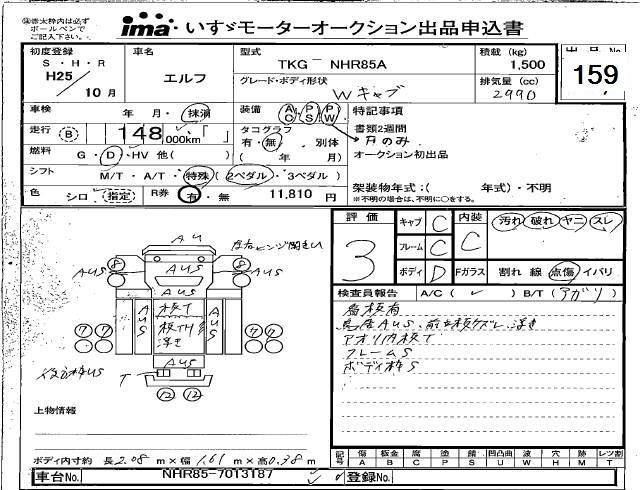 ※赤太枠内は必ず
ボールペンで
ご記入下さい。
ima いすゞモーターオークション出品申込書
初度登録 S・H・R H25 / 10月
車名 エルフ
型式 TKG NHR85A
グレード・ボディ形状 Wキャブ
積載 (kg) 1,500
排気量 (cc) 2990
出品No. 159
車検 年 月・抹消
走行 B 148,000km
燃料 G・D・HV 他( )
シフト M/T・A/T・特殊 (2ペダル・3ペダル)
色 シロ (指定)
R券 有・無 11,810 円
装備 AC PS PW
タコグラフ
有・無・別体
( 年 月)
特記事項
書類2週間
オークション初出品
架装物年式:( 年式)・不明
※不明の場合は、不明に○をする。
評価 3
キャブ C
フレーム C
ボディ D
内装 C 汚れ 破れ ヤニ スレ
Fガラス 割れ 線 点傷 イバリ
検査員報告 A/C( ✓ ) B/T(アガリ)
アオリ内板T
フレームS
ボディ枠S
AU
AUS
8 AUS AUS 8
AUS
AUS AUS
7 7 7 7
AUS
T
12 12
上物情報
ボディ内寸約 長2.08m×幅1.61m×高0.38m
記号 傷A 板金B 腐C 塗P 錆S 凹凸曲U 波W 穴H 跡M レツ割T
車台No. NHR85-7013187
登録No.